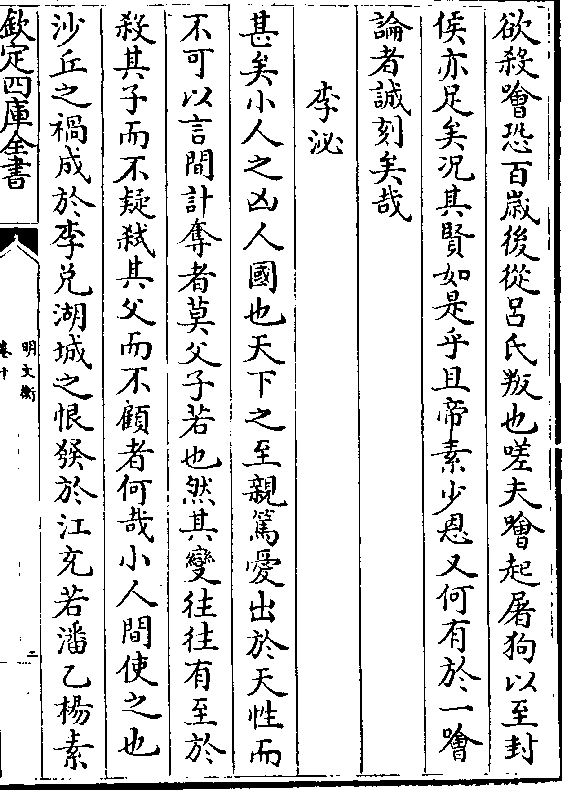 欲殺噲恐百歲後從呂氏叛也嗟夫噲起屠狗以至封
侯亦足矣况其賢如是乎且帝素少恩又何有於一噲
論者誠刻矣哉
李泌
甚矣小人之凶人國也天下之至親篤愛出於天性而
不可以言間計奪者莫父子若也然其變往往有至於
殺其子而不疑弑其父而不顧者何哉小人間使之也
沙丘之禍成於李兌湖城之恨發於江充若潘乙楊素
欽定四庫全書
明文衡
卷十
二